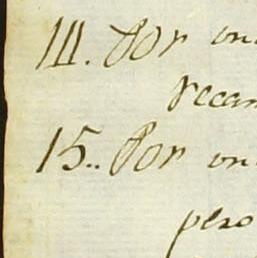 14. Por un
recan
15.. Por un
peso